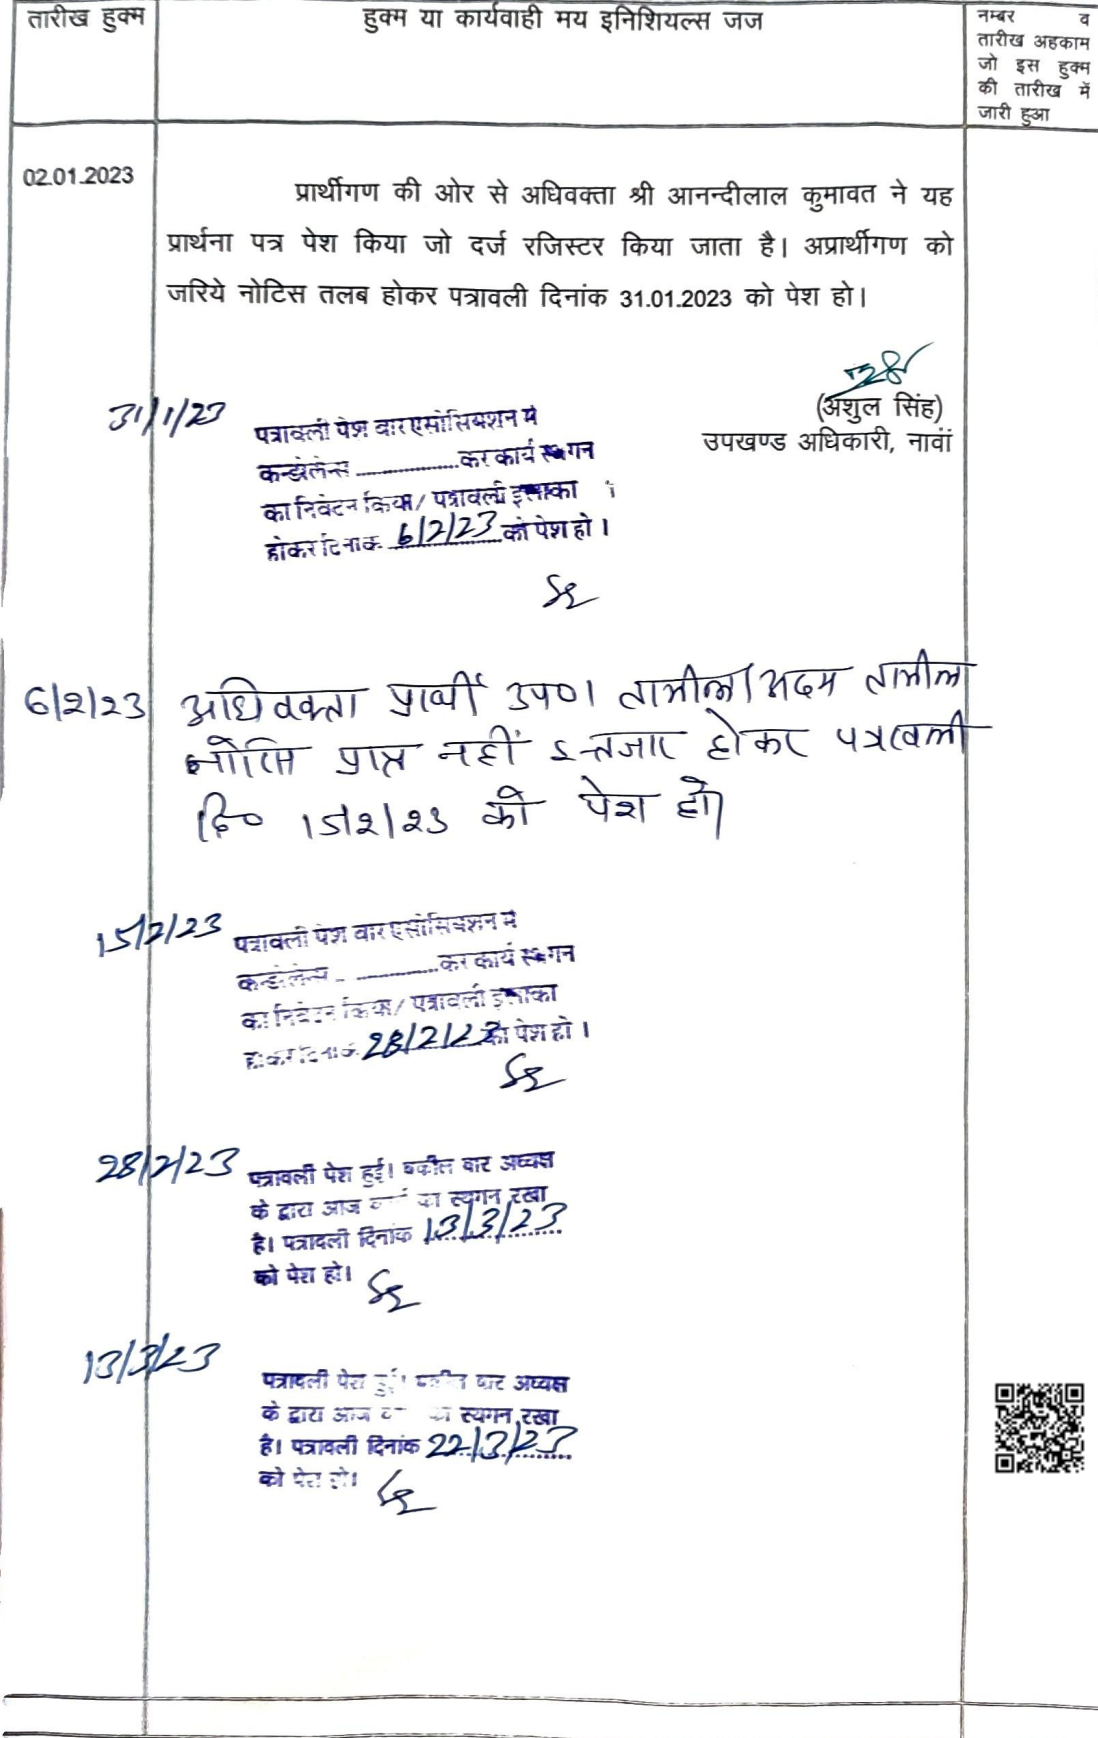 तारीख हुक्म
हुक्म या कार्यवाही मय इनिशियल्स जज
नम्बर व
तारीख अहकाम
जो इस हुक्म
की तारीख में
जारी हुआ
02.01.2023
प्रार्थीगण की ओर से अधिवक्ता श्री आनन्दीलाल कुमावत ने यह
प्रार्थना पत्र पेश किया जो दर्ज रजिस्टर किया जाता है। अप्रार्थीगण को
जरिये नोटिस तलब होकर पत्रावली दिनांक 31.01.2023 को पेश हो।
(अंशुल सिंह)
उपखण्ड अधिकारी, नावां
31/1/23
पत्रावली पेश बार एसोसियशन में
कन्डोलेन्स .................. कर कार्य स्थगन
का निवेदन किया/ पत्रावली
होकर दिनांक 6/2/23 को पेश हो।
6/2/23 अधिवक्ता प्रार्थी उप०। तामील/अदम तामील
नोटिस प्राप्त नहीं इन्तजार होकर पत्रावली
दि० 15/2/23 को पेश हो।
15/2/23
पत्रावली पेश बार एसोसियशन में
कन्डोलेन्स .................. कर कार्य स्थगन
का निवेदन किया/ पत्रावली
होकर दिनांक 28/2/23 को पेश हो।
28/2/23
पत्रावली पेश हुई। वकील बार अध्यक्ष
के द्वारा आज का स्थगन रखा
है। पत्रावली दिनांक 13/3/23
को पेश हो।
13/3/23
पत्रावली पेश हुई। वकील बार अध्यक्ष
के द्वारा आज का स्थगन रखा
है। पत्रावली दिनांक 22/3/23
को पेश हो।